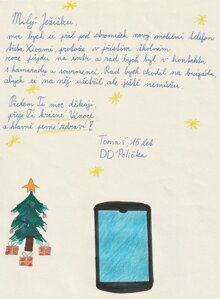 Milý Ježíšku,
moc bych si přál pod stromeček nový mobilní telefon
značka Xiaomi protože v příštím školním
roce půjdu na intr a rád bych byl v kontaktu
s kamarády a sourozenci. Rád bych chodil na brigádu,
abych si na něj ušetřil, ale ještě nemůžu
Předem Ti moc děkuji,
přeji Ti krásné Vánoce
a hlavně pevné zdraví!
Tomáš, 15 let
DD Polička